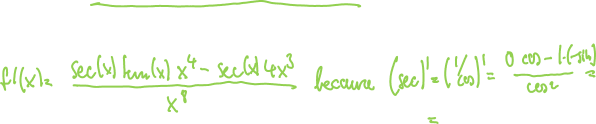 f'(x) = (sec(x) tan(x) x^4 - sec(x) 4x^3) / x^8 because (sec)' = (1/cos)' = (0 cos - 1·(-sin)) / cos^2 =
=